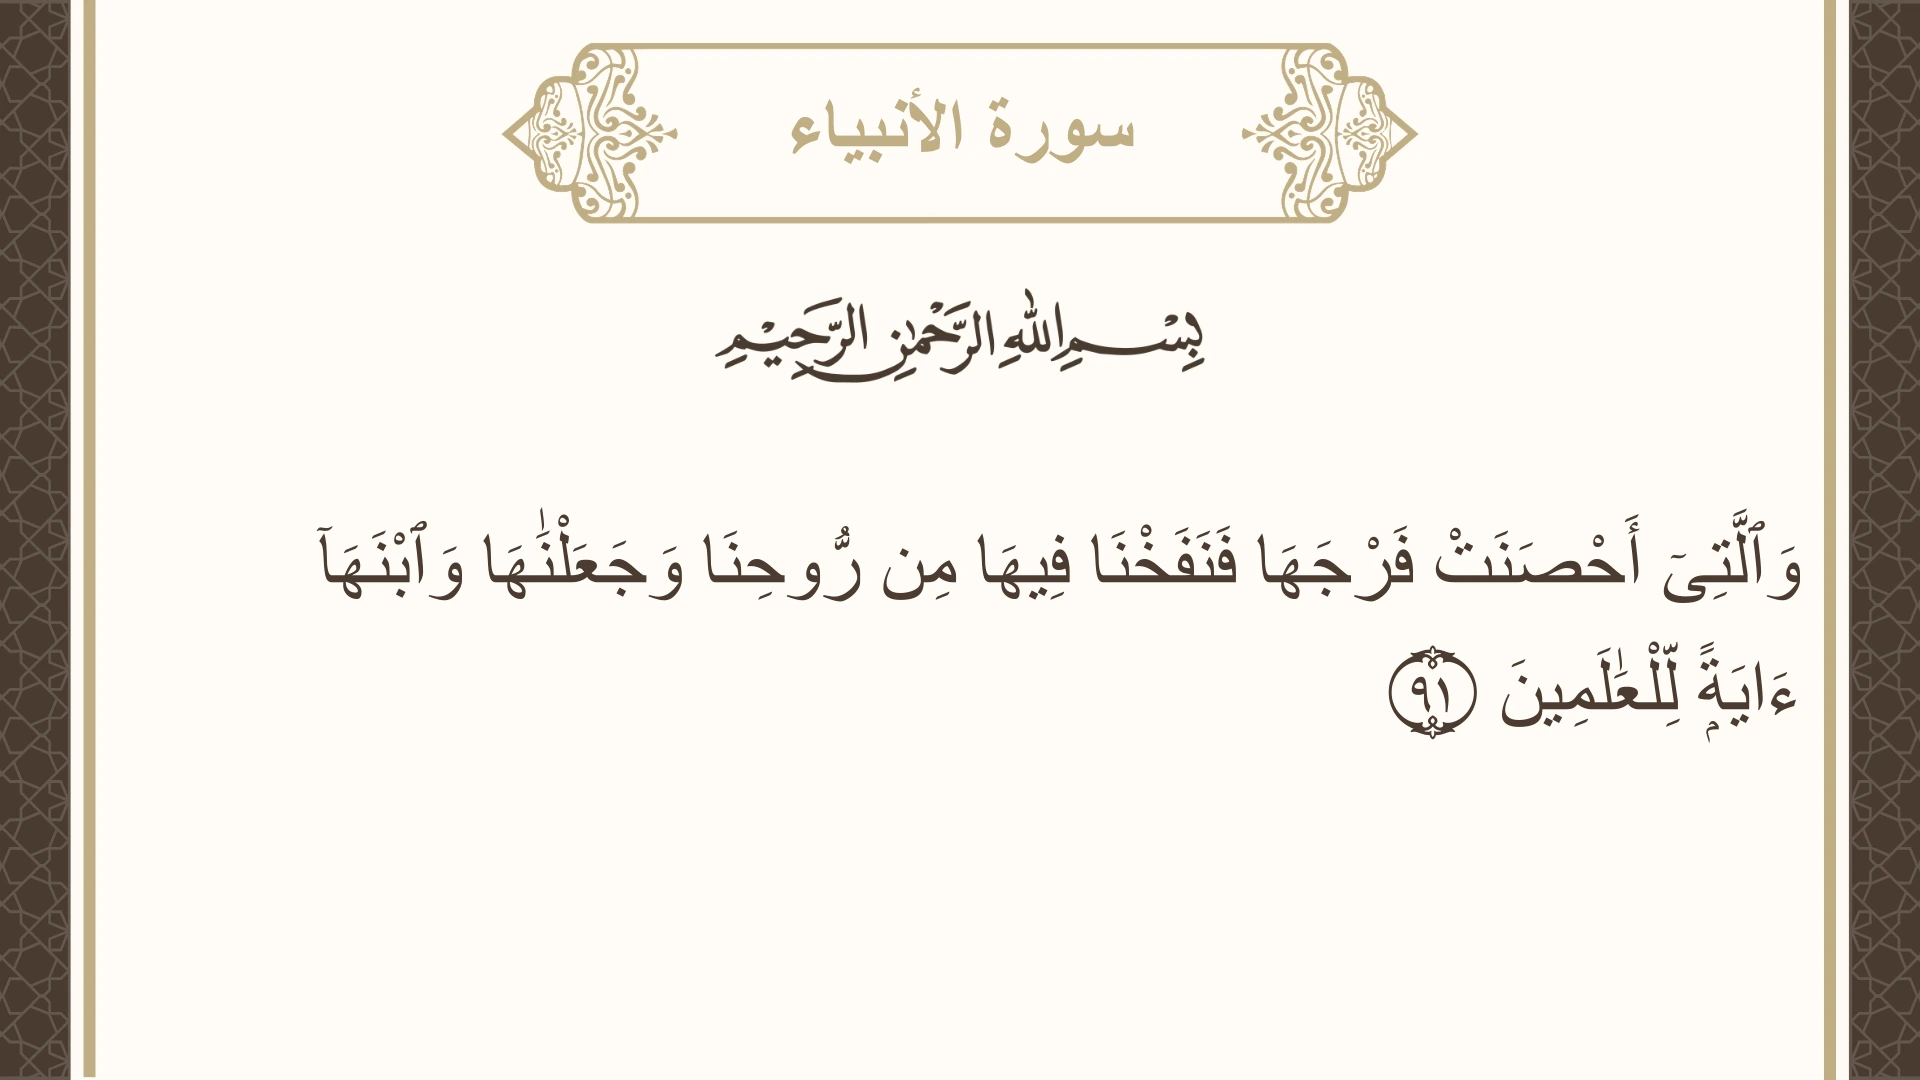 سورة الأنبياء
بِسْمِ اللهِ الرَّحْمٰنِ الرَّحِيْمِ
وَٱلَّتِىٓ أَحْصَنَتْ فَرْجَهَا فَنَفَخْنَا فِيهَا مِن رُّوحِنَا وَجَعَلْنَٰهَا وَٱبْنَهَآ
ءَايَةًۭ لِّلْعَٰلَمِينَ ٩١